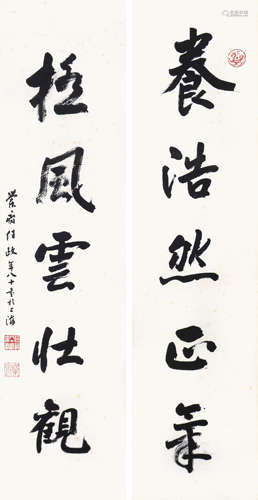 養浩然正氣
極風雲壯觀
任政年八十書於上海